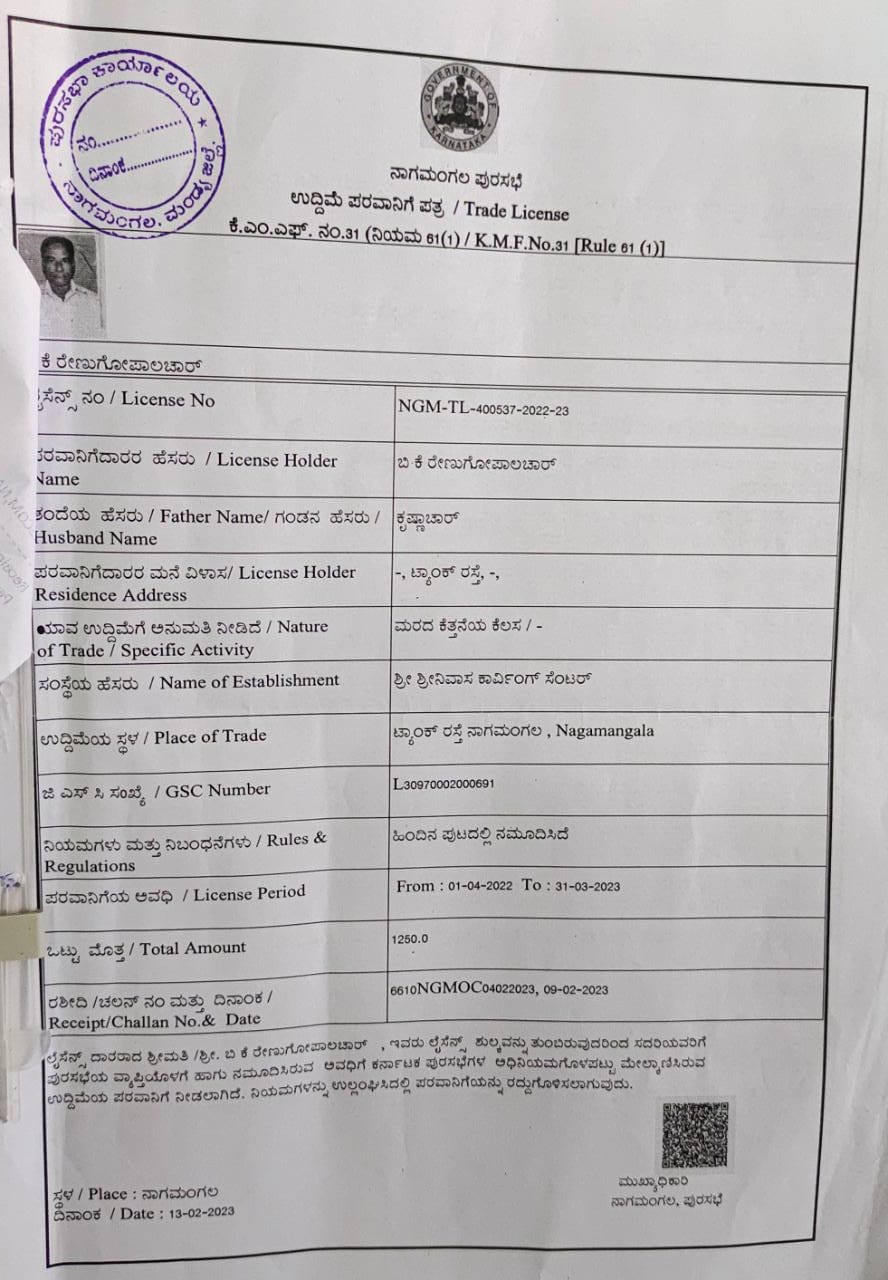 ಪುರಸಭಾ ಕಾರ್ಯಾಲಯ ★
ನಂ..................
ದಿನಾಂಕ..................
ನಾಗಮಂಗಲ, ಮಂಡ್ಯ ಜಿಲ್ಲೆ.
GOVERNMENT OF KARNATAKA
ನಾಗಮಂಗಲ ಪುರಸಭೆ
ಉದ್ದಿಮೆ ಪರವಾನಿಗೆ ಪತ್ರ / Trade License
ಕೆ.ಎಂ.ಎಫ್. ನಂ.31 (ನಿಯಮ 61(1) / K.M.F.No.31 [Rule 61 (1)]
ಕೆ ರೇಣುಗೋಪಾಲಚಾರ್
ೈಸೆನ್ಸ್ ನಂ / License No
NGM-TL-400537-2022-23
ಪರವಾನಿಗೆದಾರರ ಹೆಸರು / License Holder
Name
ಬಿ ಕೆ ರೇಣುಗೋಪಾಲಚಾರ್
ತಂದೆಯ ಹೆಸರು / Father Name/ ಗಂಡನ ಹೆಸರು /
Husband Name
ಕೃಷ್ಣಾಚಾರ್
ಪರವಾನಿಗೆದಾರರ ಮನೆ ವಿಳಾಸ/ License Holder
Residence Address
-, ಟ್ಯಾಂಕ್ ರಸ್ತೆ, -,
ಯಾವ ಉದ್ದಿಮೆಗೆ ಅನುಮತಿ ನೀಡಿದೆ / Nature
of Trade / Specific Activity
ಮರದ ಕೆತ್ತನೆಯ ಕೆಲಸ / -
ಸಂಸ್ಥೆಯ ಹೆಸರು / Name of Establishment
ಶ್ರೀ ಶ್ರೀನಿವಾಸ ಕಾರ್ವಿಂಗ್ ಸೆಂಟರ್
ಉದ್ದಿಮೆಯ ಸ್ಥಳ / Place of Trade
ಟ್ಯಾಂಕ್ ರಸ್ತೆ ನಾಗಮಂಗಲ , Nagamangala
ಜಿ ಎಸ್ ಸಿ ಸಂಖ್ಯೆ / GSC Number
L30970002000691
ನಿಯಮಗಳು ಮತ್ತು ನಿಬಂಧನೆಗಳು / Rules &
Regulations
ಹಿಂದಿನ ಪುಟದಲ್ಲಿ ನಮೂದಿಸಿದೆ
ಪರವಾನಿಗೆಯ ಅವಧಿ / License Period
From : 01-04-2022 To : 31-03-2023
ಒಟ್ಟು ಮೊತ್ತ / Total Amount
1250.0
ರಶೀದಿ /ಚಲನ್ ನಂ ಮತ್ತು ದಿನಾಂಕ /
Receipt/Challan No.& Date
6610NGMOC04022023, 09-02-2023
ಲೈಸೆನ್ಸ್ ದಾರರಾದ ಶ್ರೀಮತಿ /ಶ್ರೀ. ಬಿ ಕೆ ರೇಣುಗೋಪಾಲಚಾರ್ , ಇವರು ಲೈಸೆನ್ಸ್ ಶುಲ್ಕವನ್ನು ತುಂಬಿರುವುದರಿಂದ ಸದರಿಯವರಿಗೆ
ಪುರಸಭೆಯ ವ್ಯಾಪ್ತಿಯೊಳಗೆ ಹಾಗು ನಮೂದಿಸಿರುವ ಅವಧಿಗೆ ಕರ್ನಾಟಕ ಪುರಸಭೆಗಳ ಅಧಿನಿಯಮಗೊಳಪಟ್ಟು ಮೇಲ್ಕಾಣಿಸಿರುವ
ಉದ್ದಿಮೆಯ ಪರವಾನಿಗೆ ನೀಡಲಾಗಿದೆ. ನಿಯಮಗಳನ್ನು ಉಲ್ಲಂಘಿಸಿದಲ್ಲಿ ಪರವಾನಿಗೆಯನ್ನು ರದ್ದುಗೊಳಿಸಲಾಗುವುದು.
ಸ್ಥಳ / Place : ನಾಗಮಂಗಲ
ದಿನಾಂಕ / Date : 13-02-2023
ಮುಖ್ಯಾಧಿಕಾರಿ
ನಾಗಮಂಗಲ, ಪುರಸಭೆ